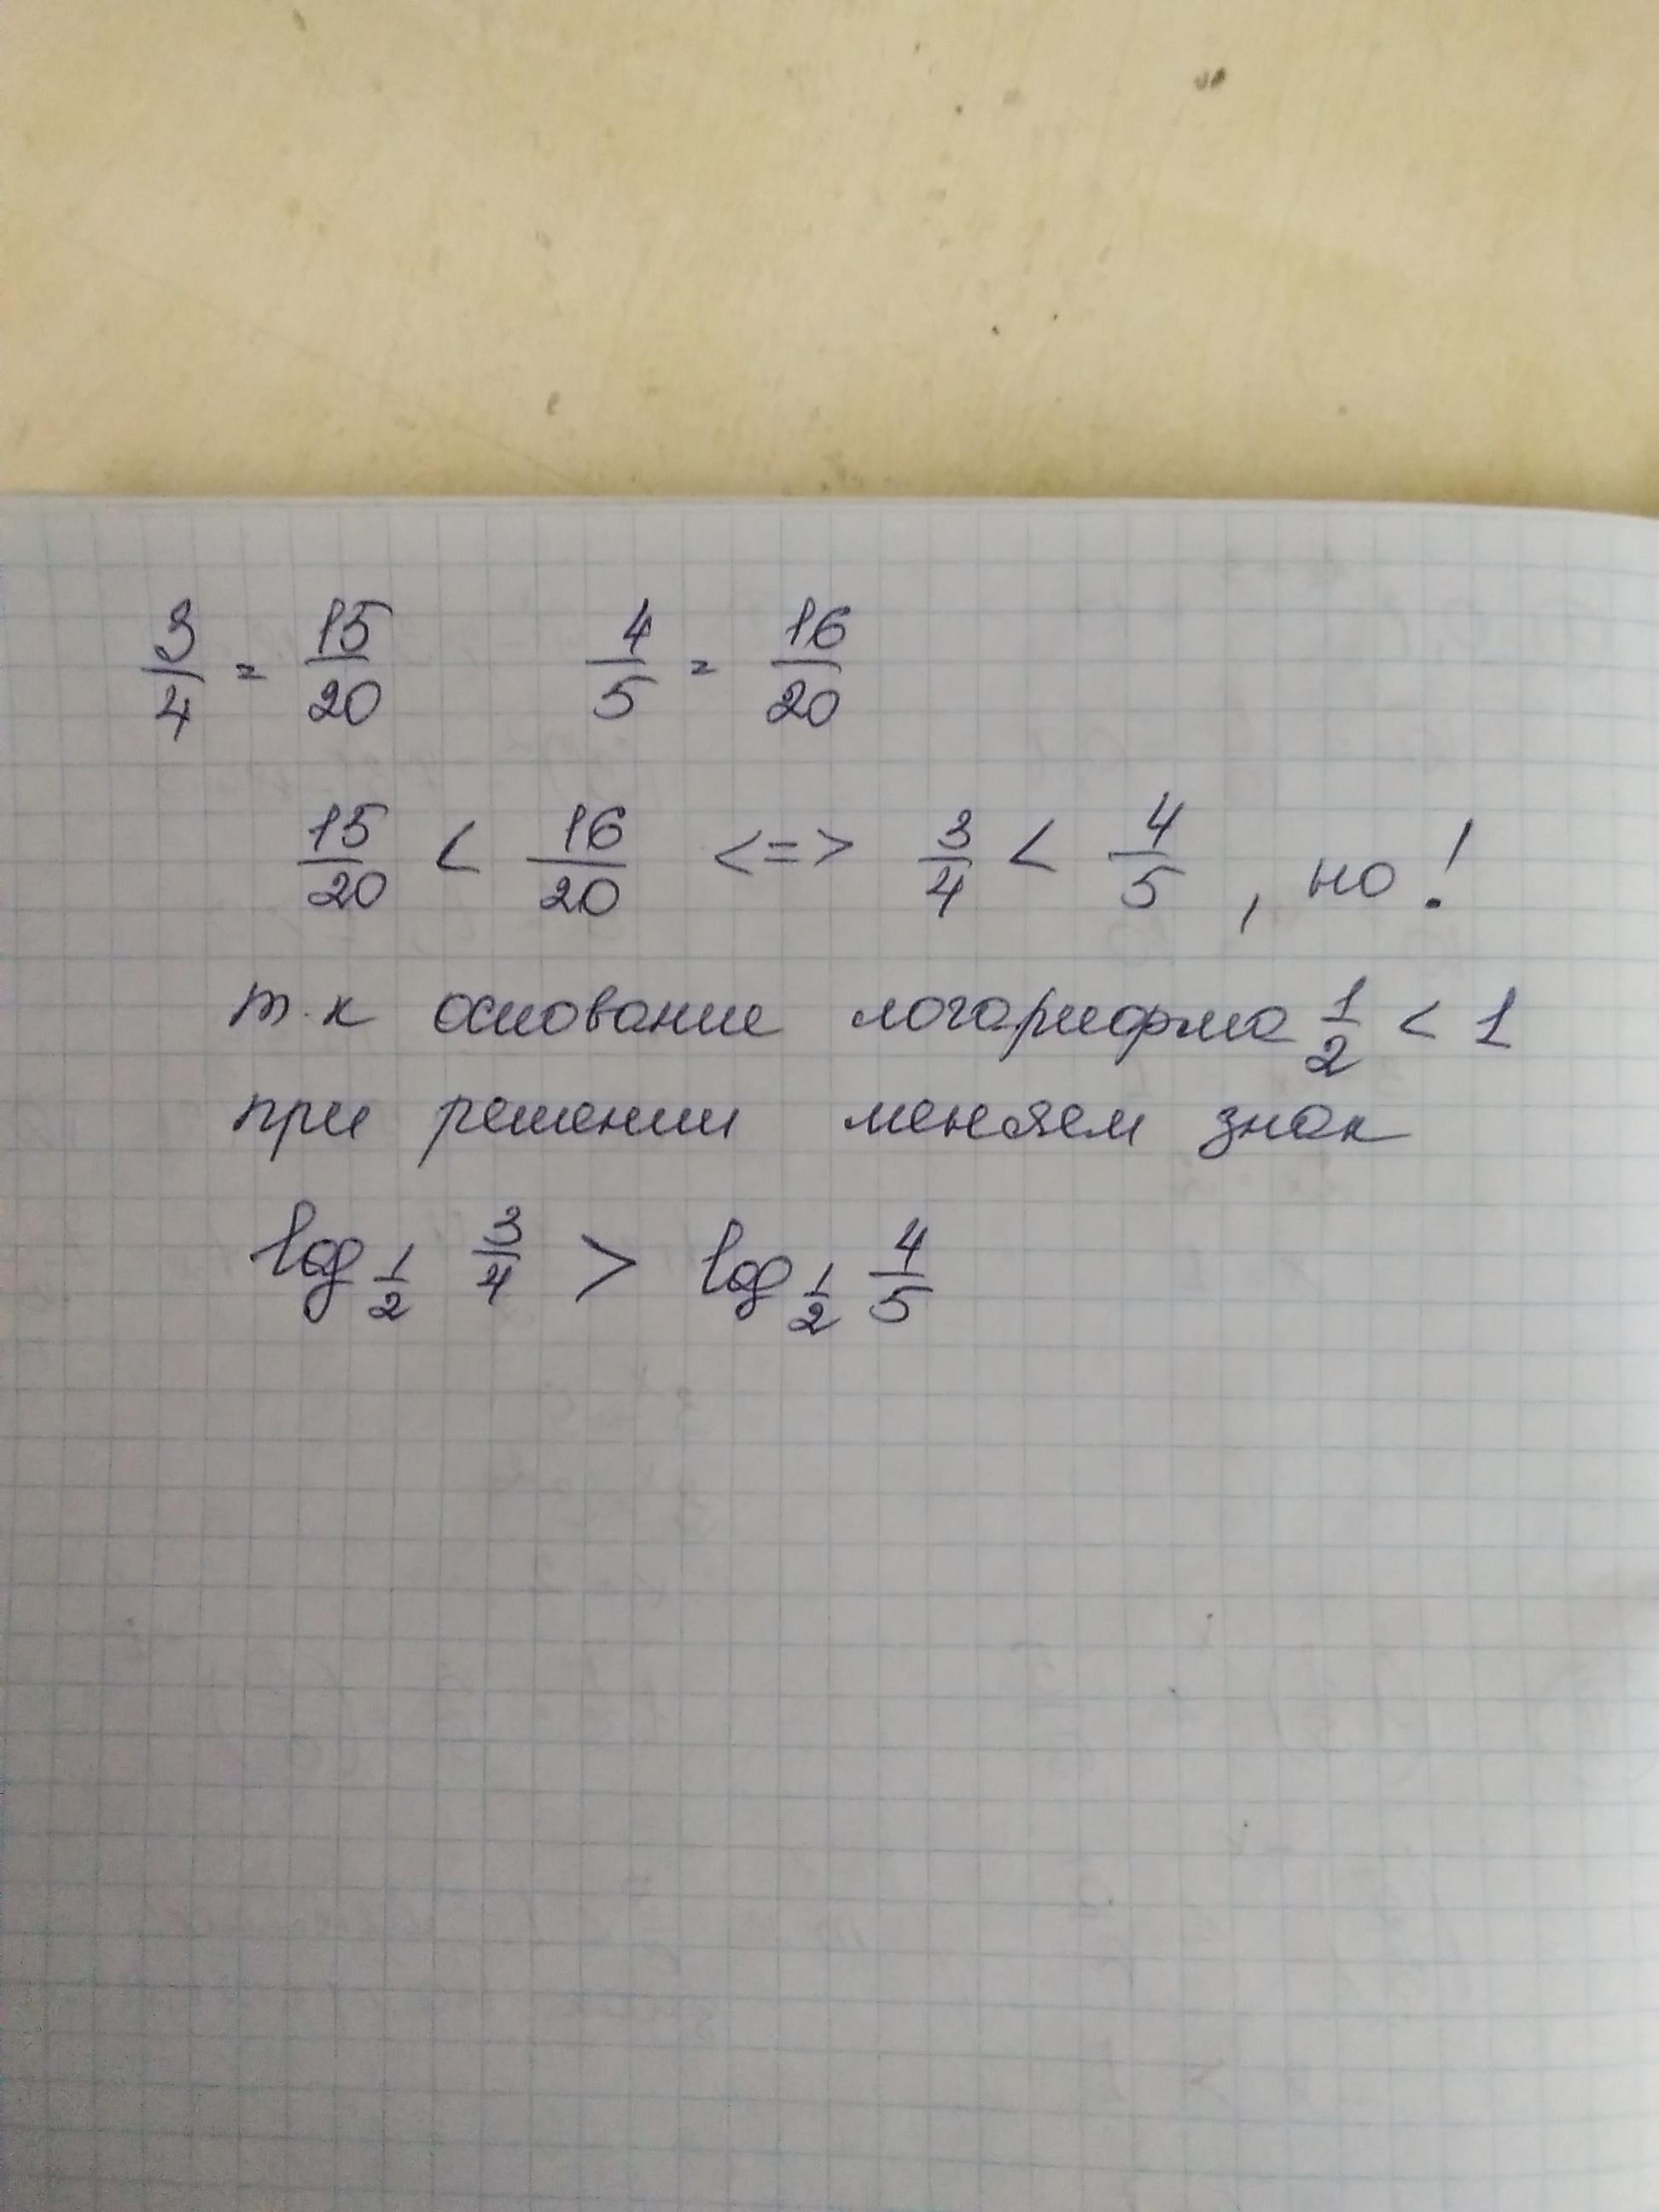 3/4 = 15/20 4/5 = 16/20
15/20 < 16/20 <=> 3/4 < 4/5 , но !
т.к основание логарифма 1/2 < 1
при решении меняем знак
log_{1/2} 3/4 > log_{1/2} 4/5